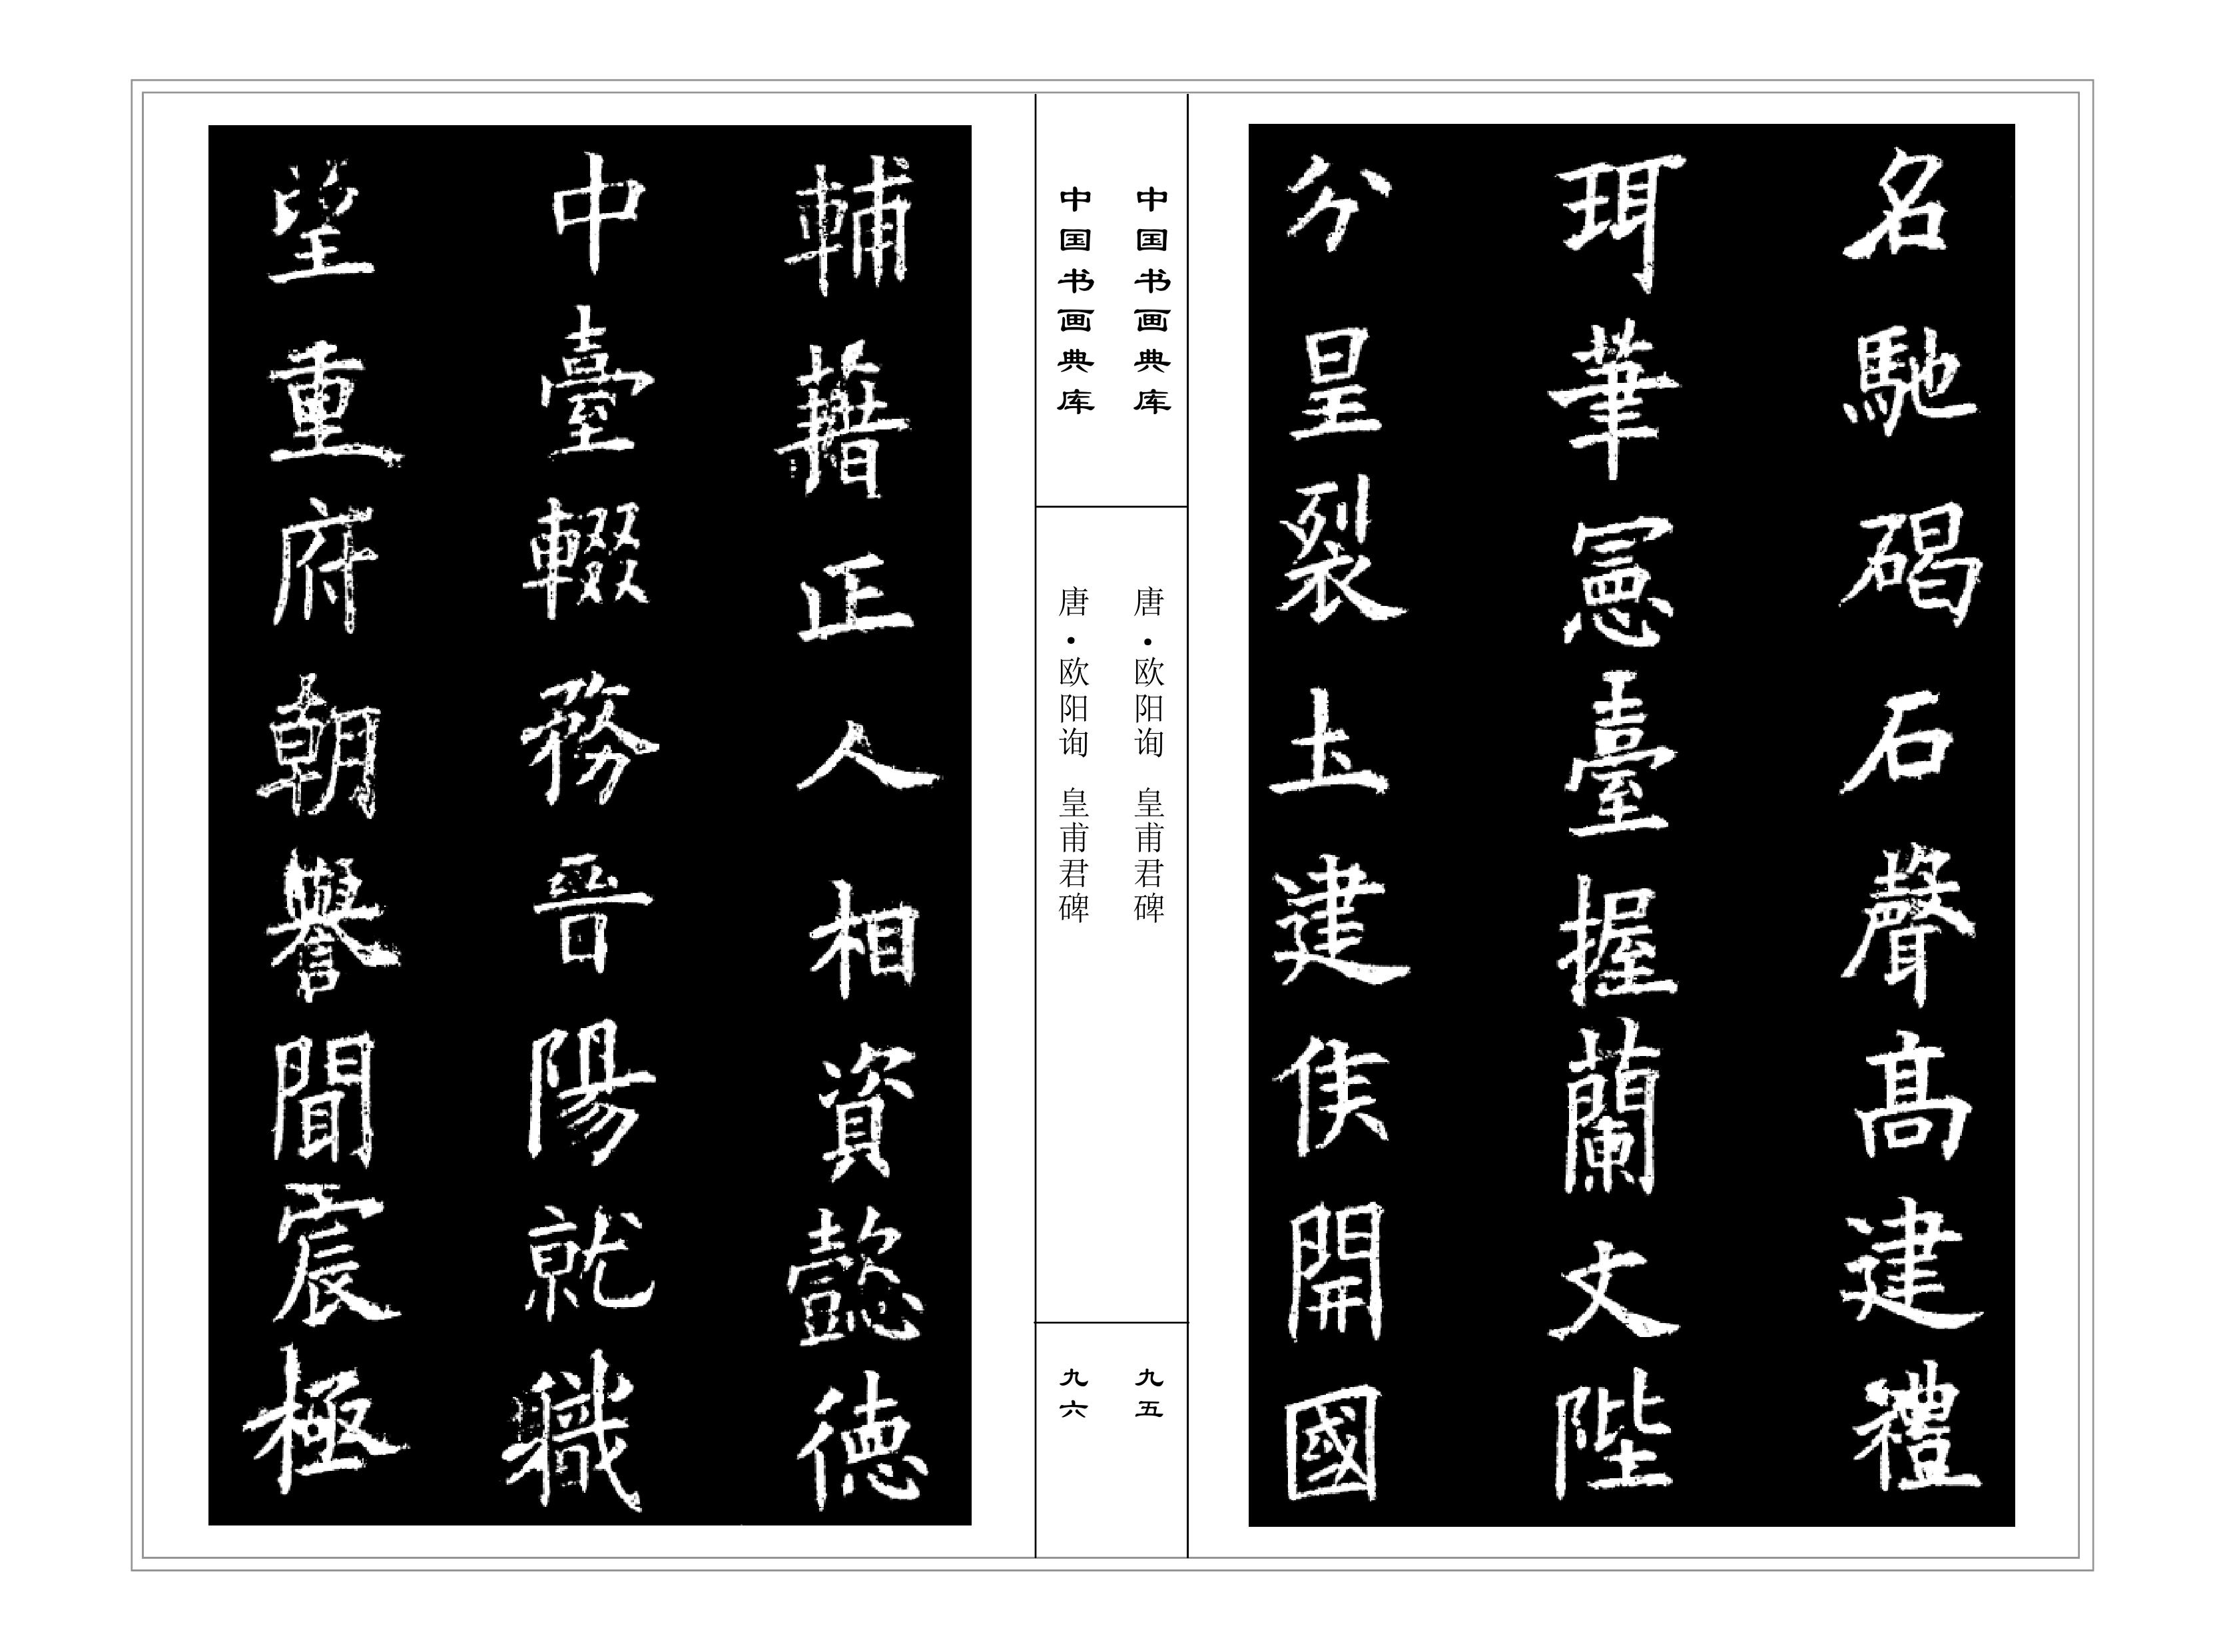 名馳碣石聲髙建禮
珥筆憲臺握蘭文陛
分星裂土建侯開國
中国书画典库
唐·欧阳询 皇甫君碑
九五
中国书画典库
唐·欧阳询 皇甫君碑
九六
輔藉正人相資懿德
中臺輟務晉陽就職
望重府朝譽聞宸極